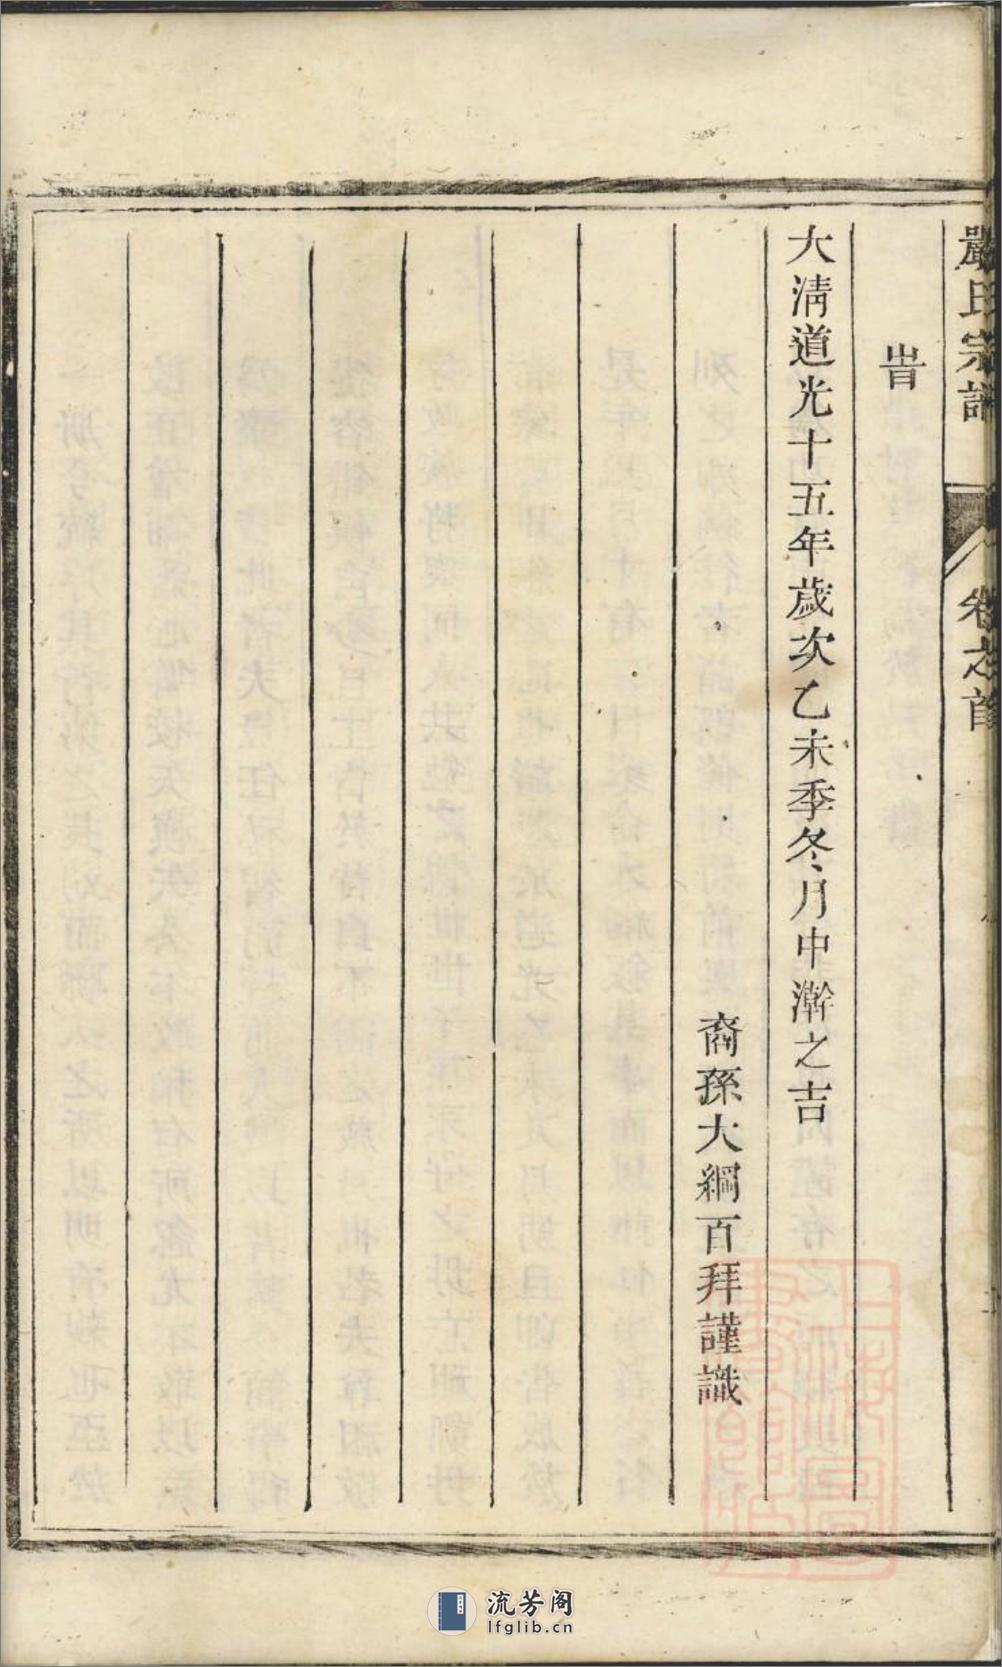 嚴氏宗譜
卷之首
旹
大清道光十五年歲次乙未季冬月中澣之吉
裔孫大綱百拜謹識
流芳阁
lfglib.cn